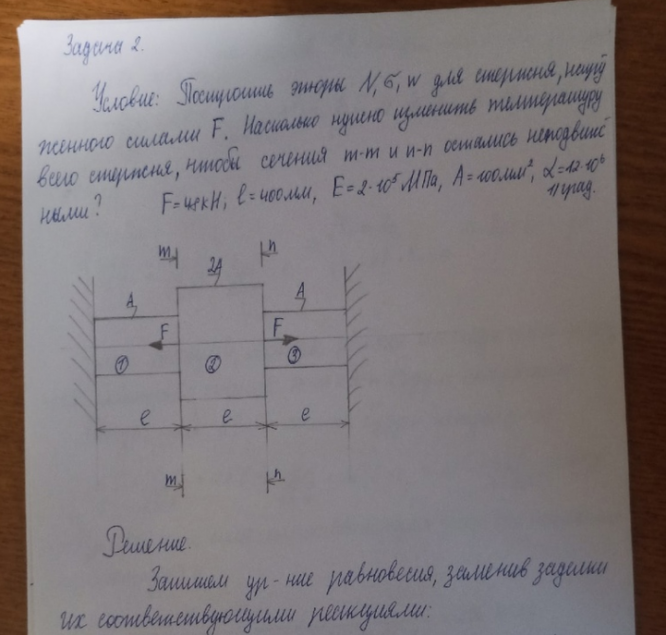 Задача 2.
Условие: Построить эпюры N, σ, w для стержня, нагру
женного силами F. Насколько нужно изменить температуру
всего стержня, чтобы сечения m-m и n-n остались неподвиж
ными? F=48кН; l=400мм, E=2·10⁵ МПа, A=100мм², α=12·10⁶
1/град.
m n
2A
A A
F F
① ② ③
l l l
m n
Решение.
Запишем ур-ние равновесия, заменив заделки
их соответствующими реакциями: